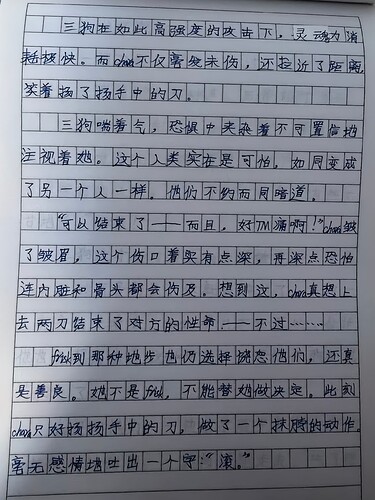 三狗在如此高强度的攻击下，灵魂力消
耗极快。而chara不仅毫发未伤，还拉近了距离，
笑着扬了扬手中的刀。
三狗喘着气，恐惧中夹杂着不可置信地
注视着她。这个人类实在是可怕，如同变成
了另一个人一样。他们不约而同暗道。
“可以结束了——而且，好TM痛啊！”chara皱
了皱眉，这个伤口着实有点深，再深点恐怕
连内脏和骨头都会伤及。想到这，chara真想上
去两刀结束了对方的性命——不过……
frisk到那种地步也仍选择饶恕他们，还真
是善良。她不是frisk，不能替她做决定。此刻
chara只好扬扬手中的刀，做了一个抹脖的动作。
毫无感情地吐出一个字：“滚。”